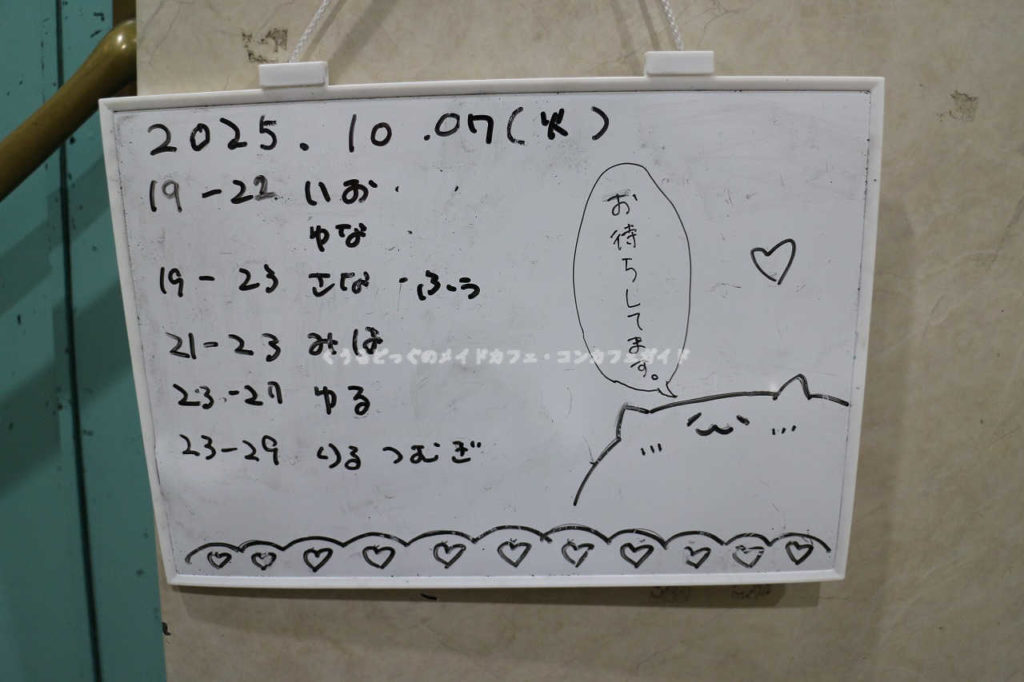 2025.10.07(火)
19-22 いお
ゆな
19-23 さな・ふう
21-23 みほ
23-27 ゆる
23-29 りる つむぎ
お待ちしてます。
くろすどっぐのメイドカフェ・コンカフェガイド